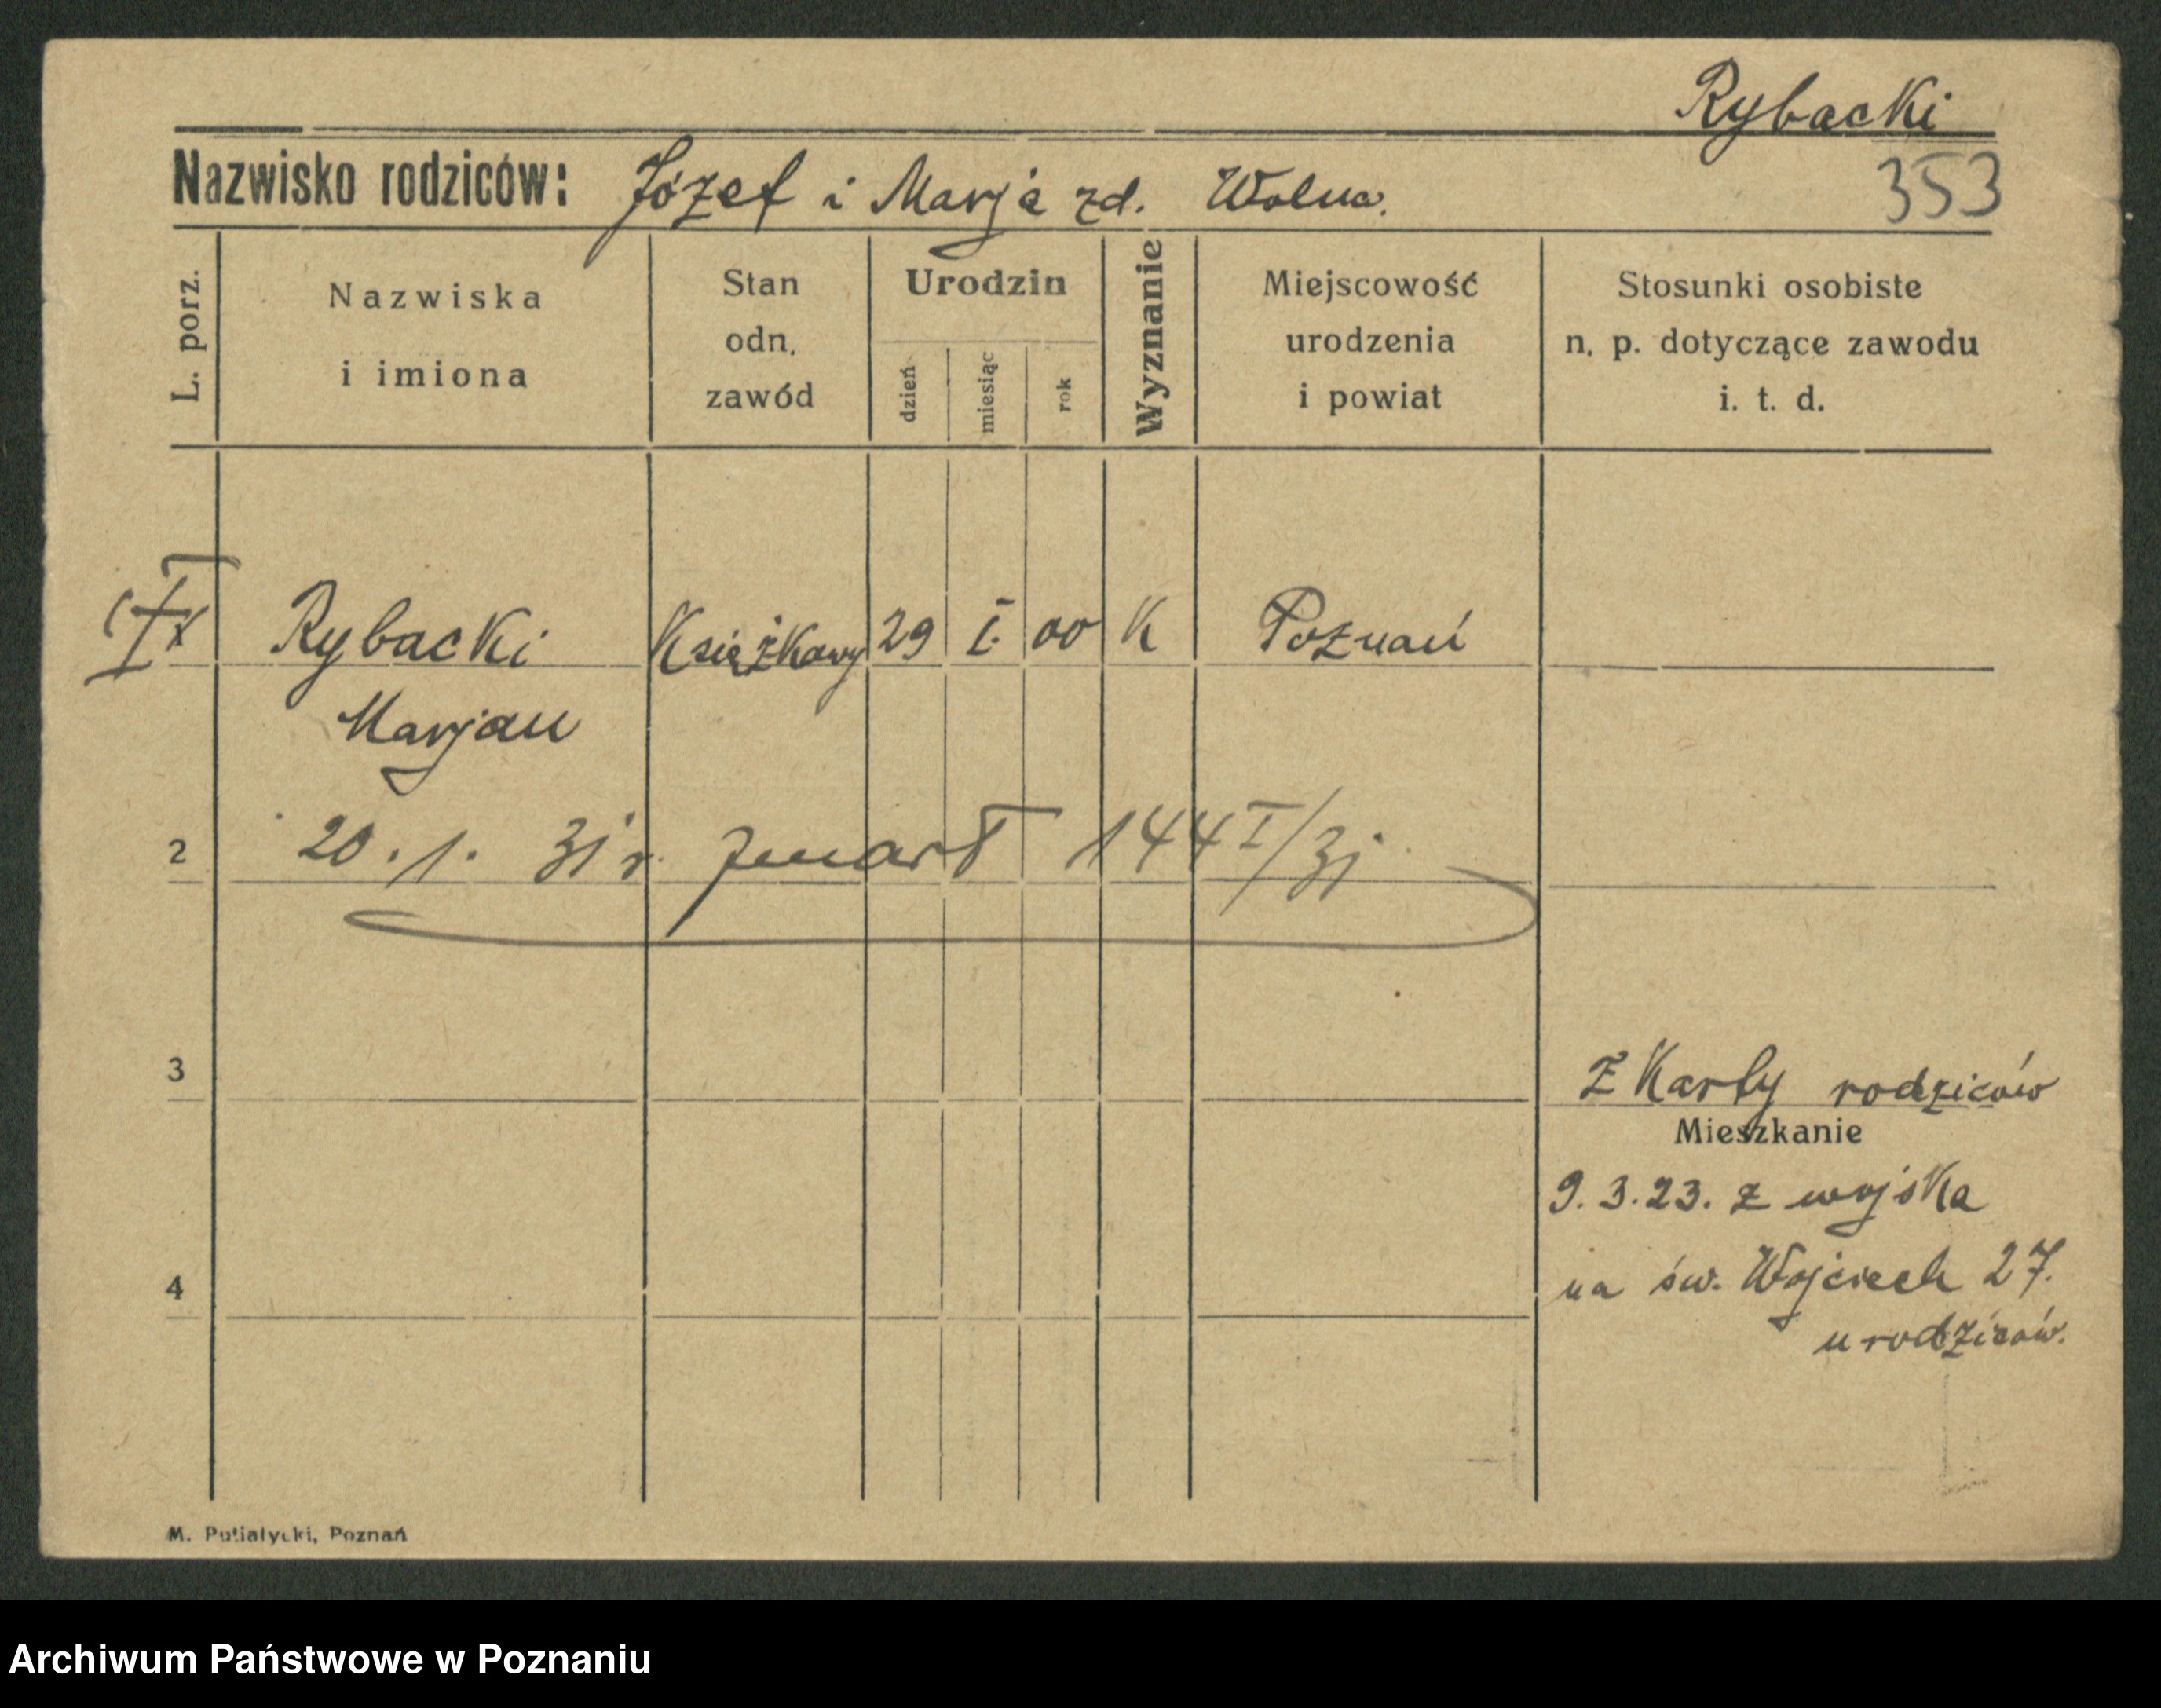 Rybacki
Nazwisko rodziców: Józef i Marja zd. Wolna.
353
L. porz.
Nazwiska
i imiona
Stan
odn.
zawód
Urodzin
dzień
miesiąc
rok
Wyznanie
Miejscowość
urodzenia
i powiat
Stosunki osobiste
n. p. dotyczące zawodu
i. t. d.
Rybacki Książkowy 29 I. 00 K Poznań
Marjan
2 20. 1. 31 r. zmarł 144 I/31
3
Z Karty rodziców
Mieszkanie
9. 3. 23. z wojska
4
na św. Wojciech 27.
u rodziców.
M. Putiatycki, Poznań
Archiwum Państwowe w Poznaniu